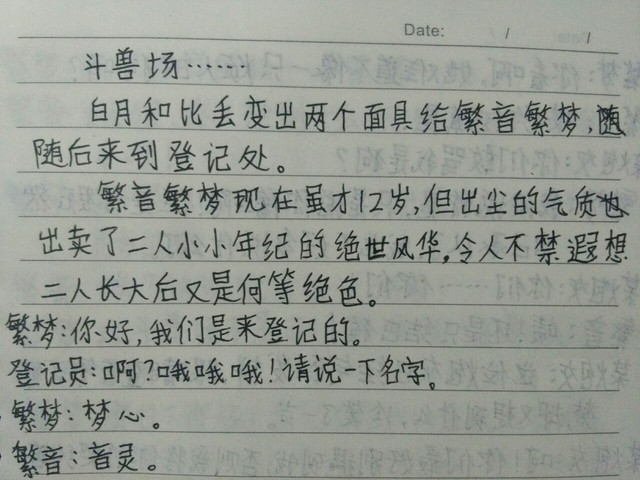 Date: / /
斗兽场……
白月和比丢变出两个面具给繁音繁梦,随
随后来到登记处。
繁音繁梦现在虽才12岁,但出尘的气质也
出卖了二人小小年纪的绝世风华,令人不禁遐想
二人长大后又是何等绝色。
繁梦:你好,我们是来登记的。
登记员:啊?哦哦哦!请说一下名字。
繁梦:梦心。
繁音:音灵。